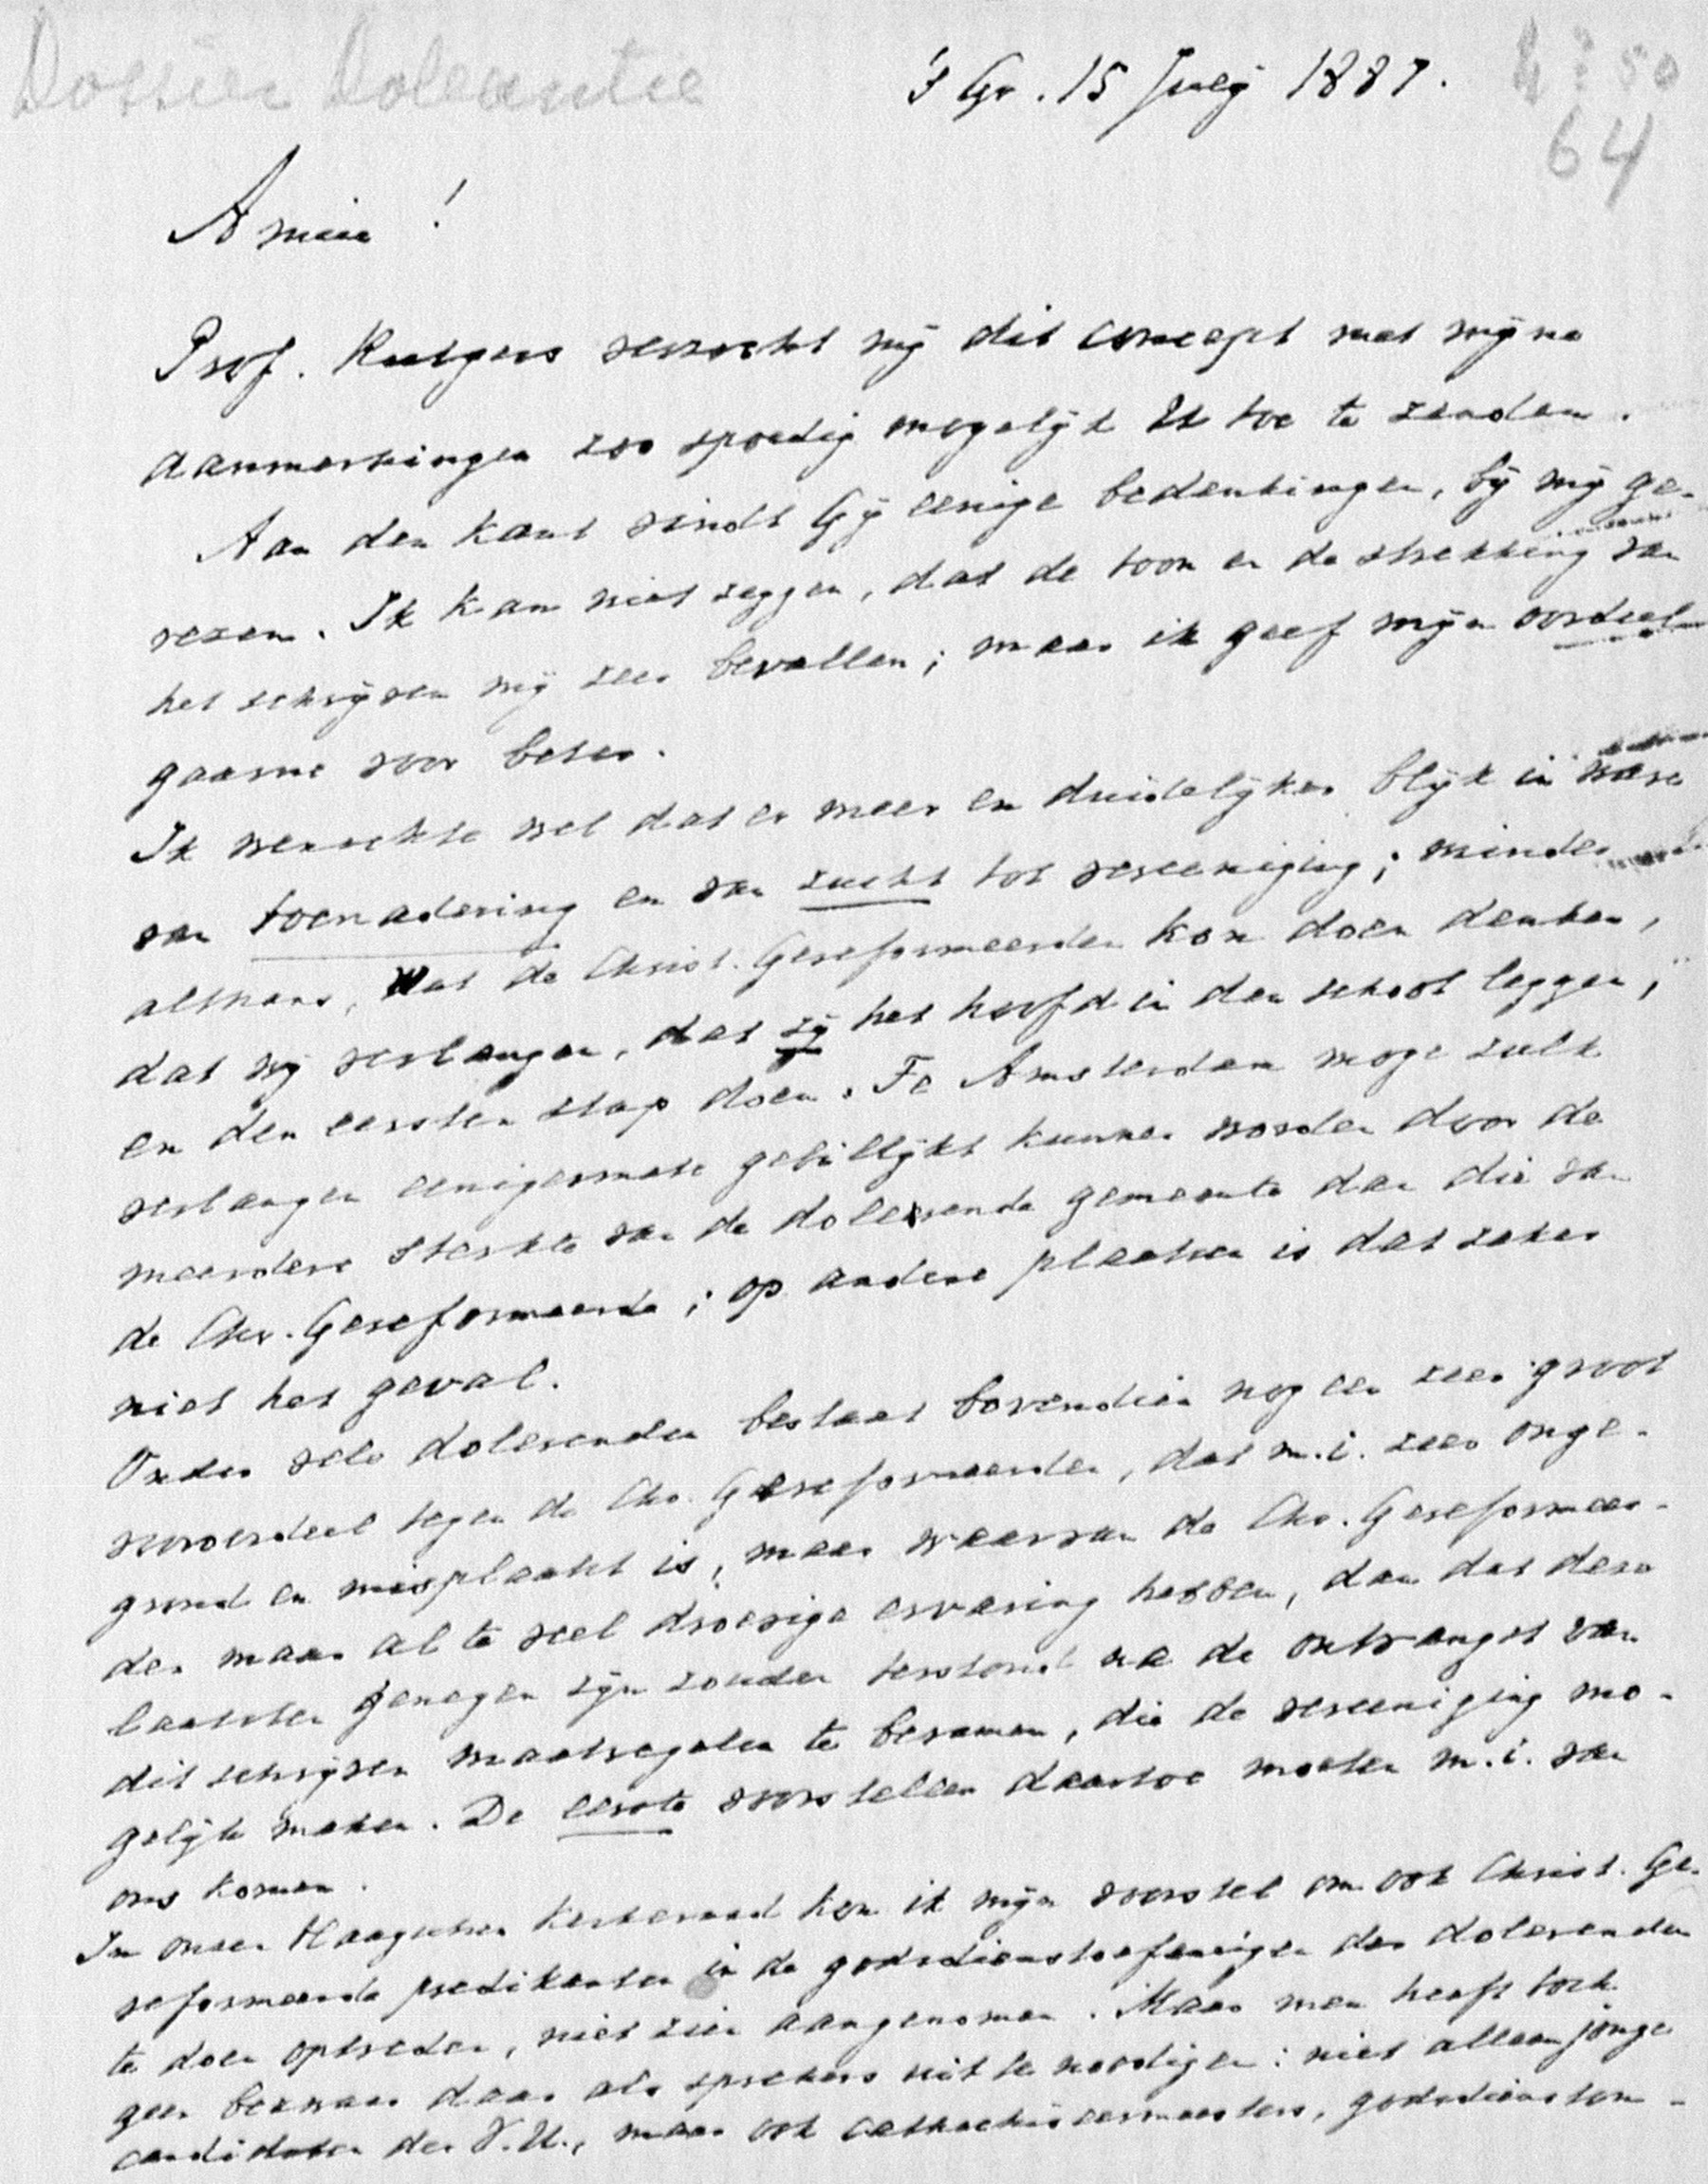 Dossier Doleantie
's Gr. 15 July 1887.
64
Amice!
Prof. Rutgers verzocht mij dit concept met mijne
aanmerkingen zoo spoedig mogelijk U toe te zenden.
Aan den kant vindt Gij eenige bedenkingen, bij mij ge-
rezen. Ik kan niet zeggen, dat de toon en de strekking van
het schrijven mij zeer bevallen; maar ik geef mijn oordeel
gaarne voor beter.
Ik wenschte wel dat er meer en duidelijker blijk in ware
van toenadering en van zucht tot vereeniging; minder
althans, wat de Christ. Gereformeerden kon doen denken,
dat wij verlangen, dat zij het hoofd in den schoot leggen,
en den eersten stap doen. Te Amsterdam moge zulk
verlangen eenigermate gebillijkt kunnen worden door de
meerdere sterkte van de doleerende gemeente dan die van
de Chr. Gereformeerde; op andere plaatsen is dat zeker
niet het geval.
Onder vele doleerenden bestaat bovendien nog een zeer groot
vooroordeel tegen de Chr. Gereformeerden, dat m.i. zeer onge-
grond en misplaatst is, maar waarvan de Chr. Gereformeer-
den maar al te veel droevige ervaring hebben, dan dat deze
laatsten genegen zijn zouden terstond na de ontvangst van
dit schrijven maatregelen te beramen, die de vereeniging mo-
gelijk maken. De eerste voorstellen daartoe moeten m.i. van
ons komen.
In onzen Haagschen kerkeraad kon ik mijn voorstel om ook Christ. Ge-
reformeerde predikanten in de godsdienstoefeningen der doleerenden
te doen optreden, niet zien aangenomen. Maar men heeft toch
geen bezwaar daar als sprekers uit te noodigen: niet alleen jonge
candidaten der V.U., maar ook catechiseermeesters, godsdienston-